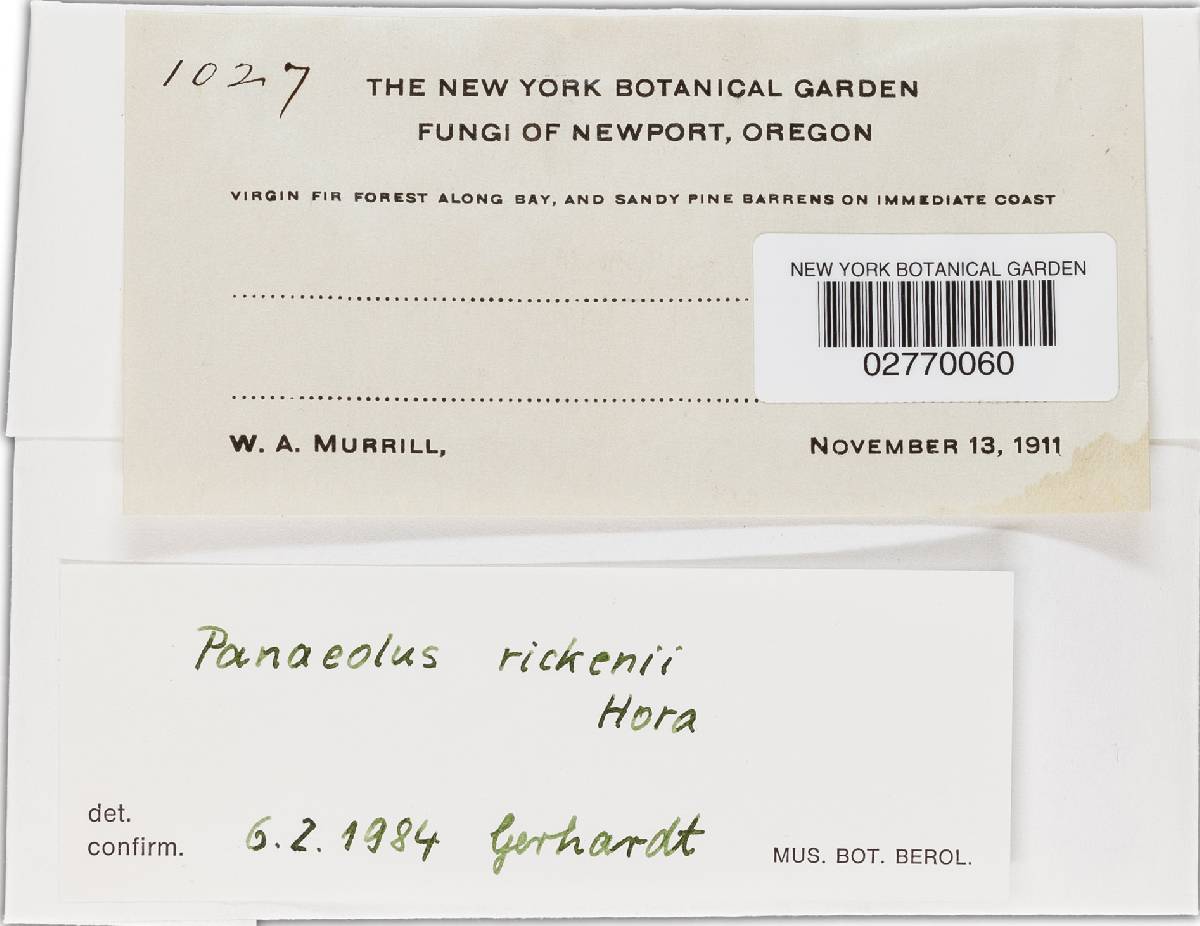 1027
THE NEW YORK BOTANICAL GARDEN
FUNGI OF NEWPORT, OREGON
VIRGIN FIR FOREST ALONG BAY, AND SANDY PINE BARRENS ON IMMEDIATE COAST
NEW YORK BOTANICAL GARDEN
02770060
W. A. MURRILL,
NOVEMBER 13, 1911
Panaeolus rickenii
Hora
det.
confirm.
6.2.1984 Gerhardt
MUS. BOT. BEROL.